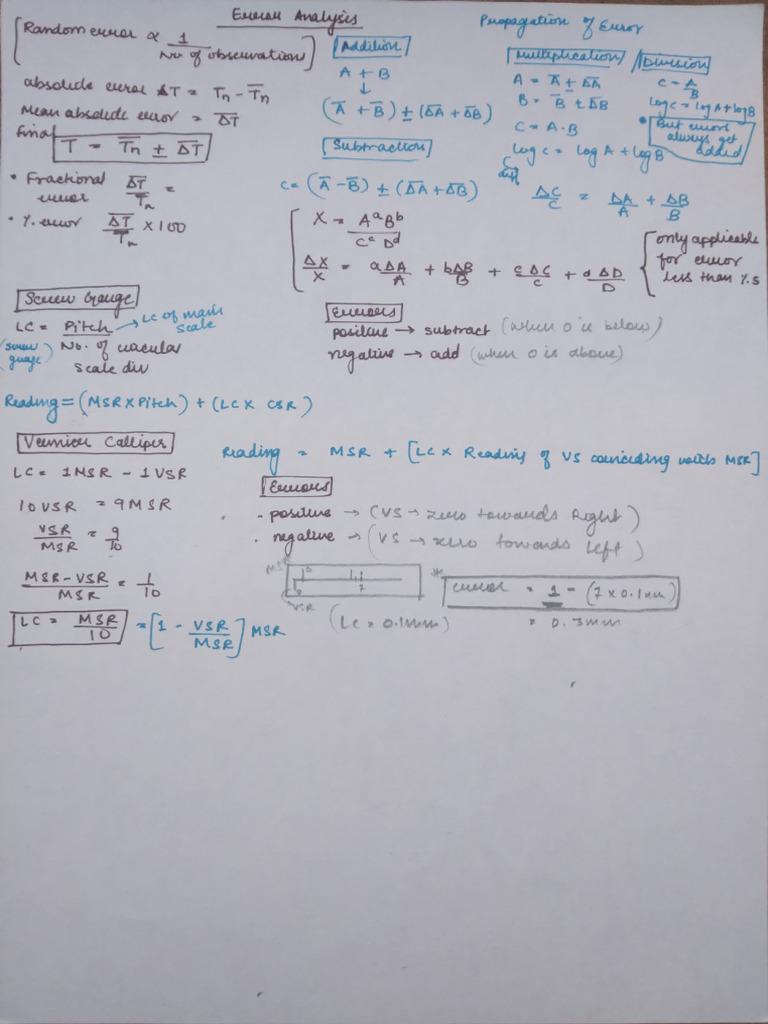 Error Analysis
Random error ∝ 1 / No of observations
absolute error ΔT = Tn - T̅n
Mean absolute error = Δ̅T̅
final
T = T̅n ± Δ̅T̅
• Fractional error Δ̅T̅ / T̅n =
• % error Δ̅T̅ / T̅n × 100
Propagation of Error
Addition
A + B
↓
(A̅ + B̅) ± (Δ̅A̅ + Δ̅B̅)
Subtraction
C = (A̅ - B̅) ± (Δ̅A̅ + Δ̅B̅)
Multiplication
A = A̅ ± Δ̅A̅
B = B̅ ± Δ̅B̅
C = A·B
log C = log A + log B
diff
ΔC/C = ΔA/A + ΔB/B
Division
C = A/B
log C = log A + log B
• But errors
always get
added
X = A^a B^b / C^c D^d
ΔX/X = aΔA/A + bΔB/B + cΔC/C + dΔD/D
only applicable
for error
less than %5
Screw Gauge
LC = Pitch / No. of circular scale div
→ LC of main scale
(screw guage)
Errors
positive → subtract (when 0 is below)
negative → add (when 0 is above)
Reading = (MSR × Pitch) + (LC × CSR)
Vernier Calliper
LC = 1MSR - 1VSR
10VSR = 9MSR
VSR/MSR = 9/10
MSR-VSR/MSR = 1/10
LC = MSR/10 = [1 - VSR/MSR] MSR
Reading = MSR + [LC × Reading of VS coinciding with MSR]
Errors
• positive → (VS → zero towards Right)
• negative → (VS → zero towards left)
MSR
0
7
VSR
(LC = 0.1mm)
error = 1 - (7 × 0.1mm)
= 0.3mm